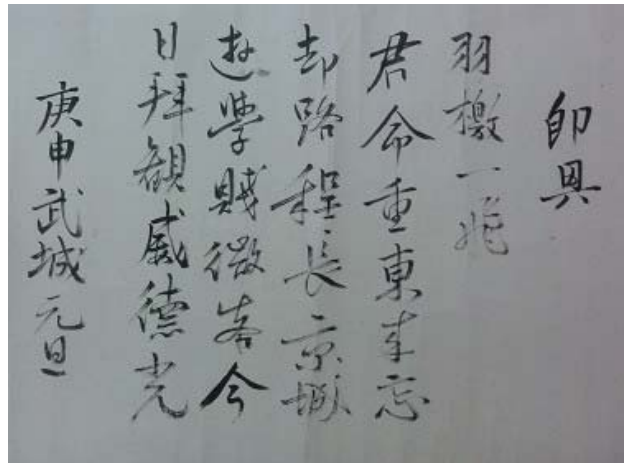 即興
羽檄一飛
君命重東来忘
却路程長京城
遊學賤微客今
日拜觀威德光
庚申武城元旦